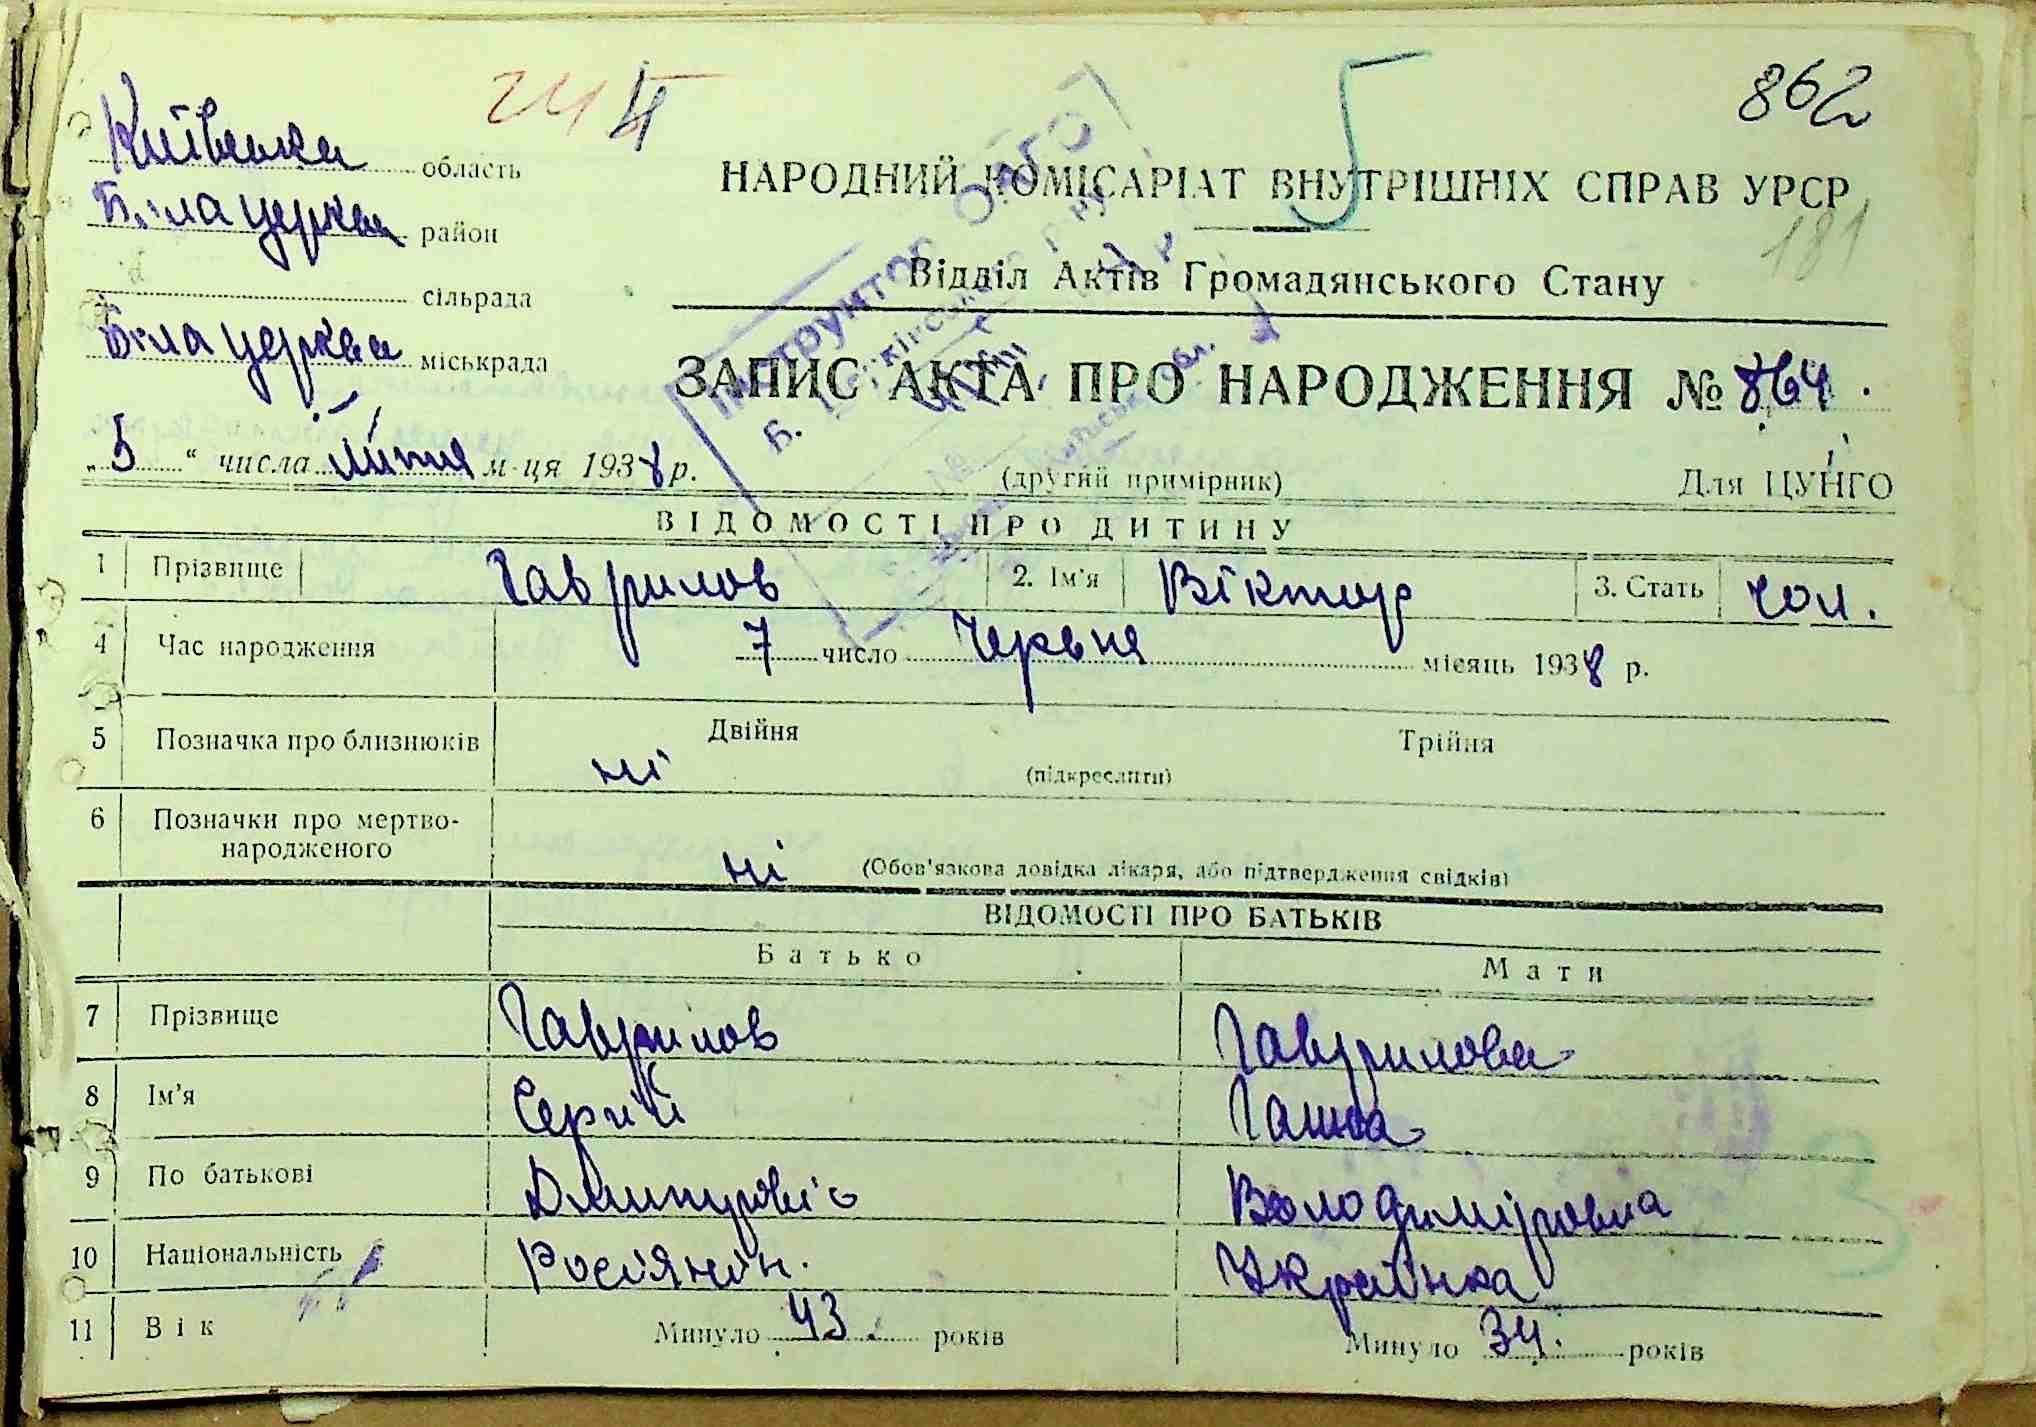 244
5
862
Київська область
Біла церква район
сільрада
Біла церква міськрада
НАРОДНИЙ КОМІСАРІАТ ВНУТРІШНІХ СПРАВ УРСР
181
Відділ Актів Громадянського Стану
ЗАПИС АКТА ПРО НАРОДЖЕННЯ № 864.
„5“ числа липня м-ця 1938 р.
(другий примірник)
Для ЦУНГО
Інструктор ОАГО
ВІДОМОСТІ ПРО ДИТИНУ
1 Прізвище Гаврилов 2. Ім'я Віктор 3. Стать чол.
4 Час народження 7 число Червня місяць 1938 р.
5 Позначка про близнюків ні Двійня (підкреслити) Трійня
6 Позначки про мертво-
народженого ні (Обов'язкова довідка лікаря, або підтвердження свідків)
ВІДОМОСТІ ПРО БАТЬКІВ
Батько Мати
7 Прізвище Гаврилов Гаврилова
8 Ім'я Сергій Ганна
9 По батькові Дмитровіч Володиміровна
10 Національність Росіянін. Українка
11 Вік Минуло 43. років Минуло 34. років